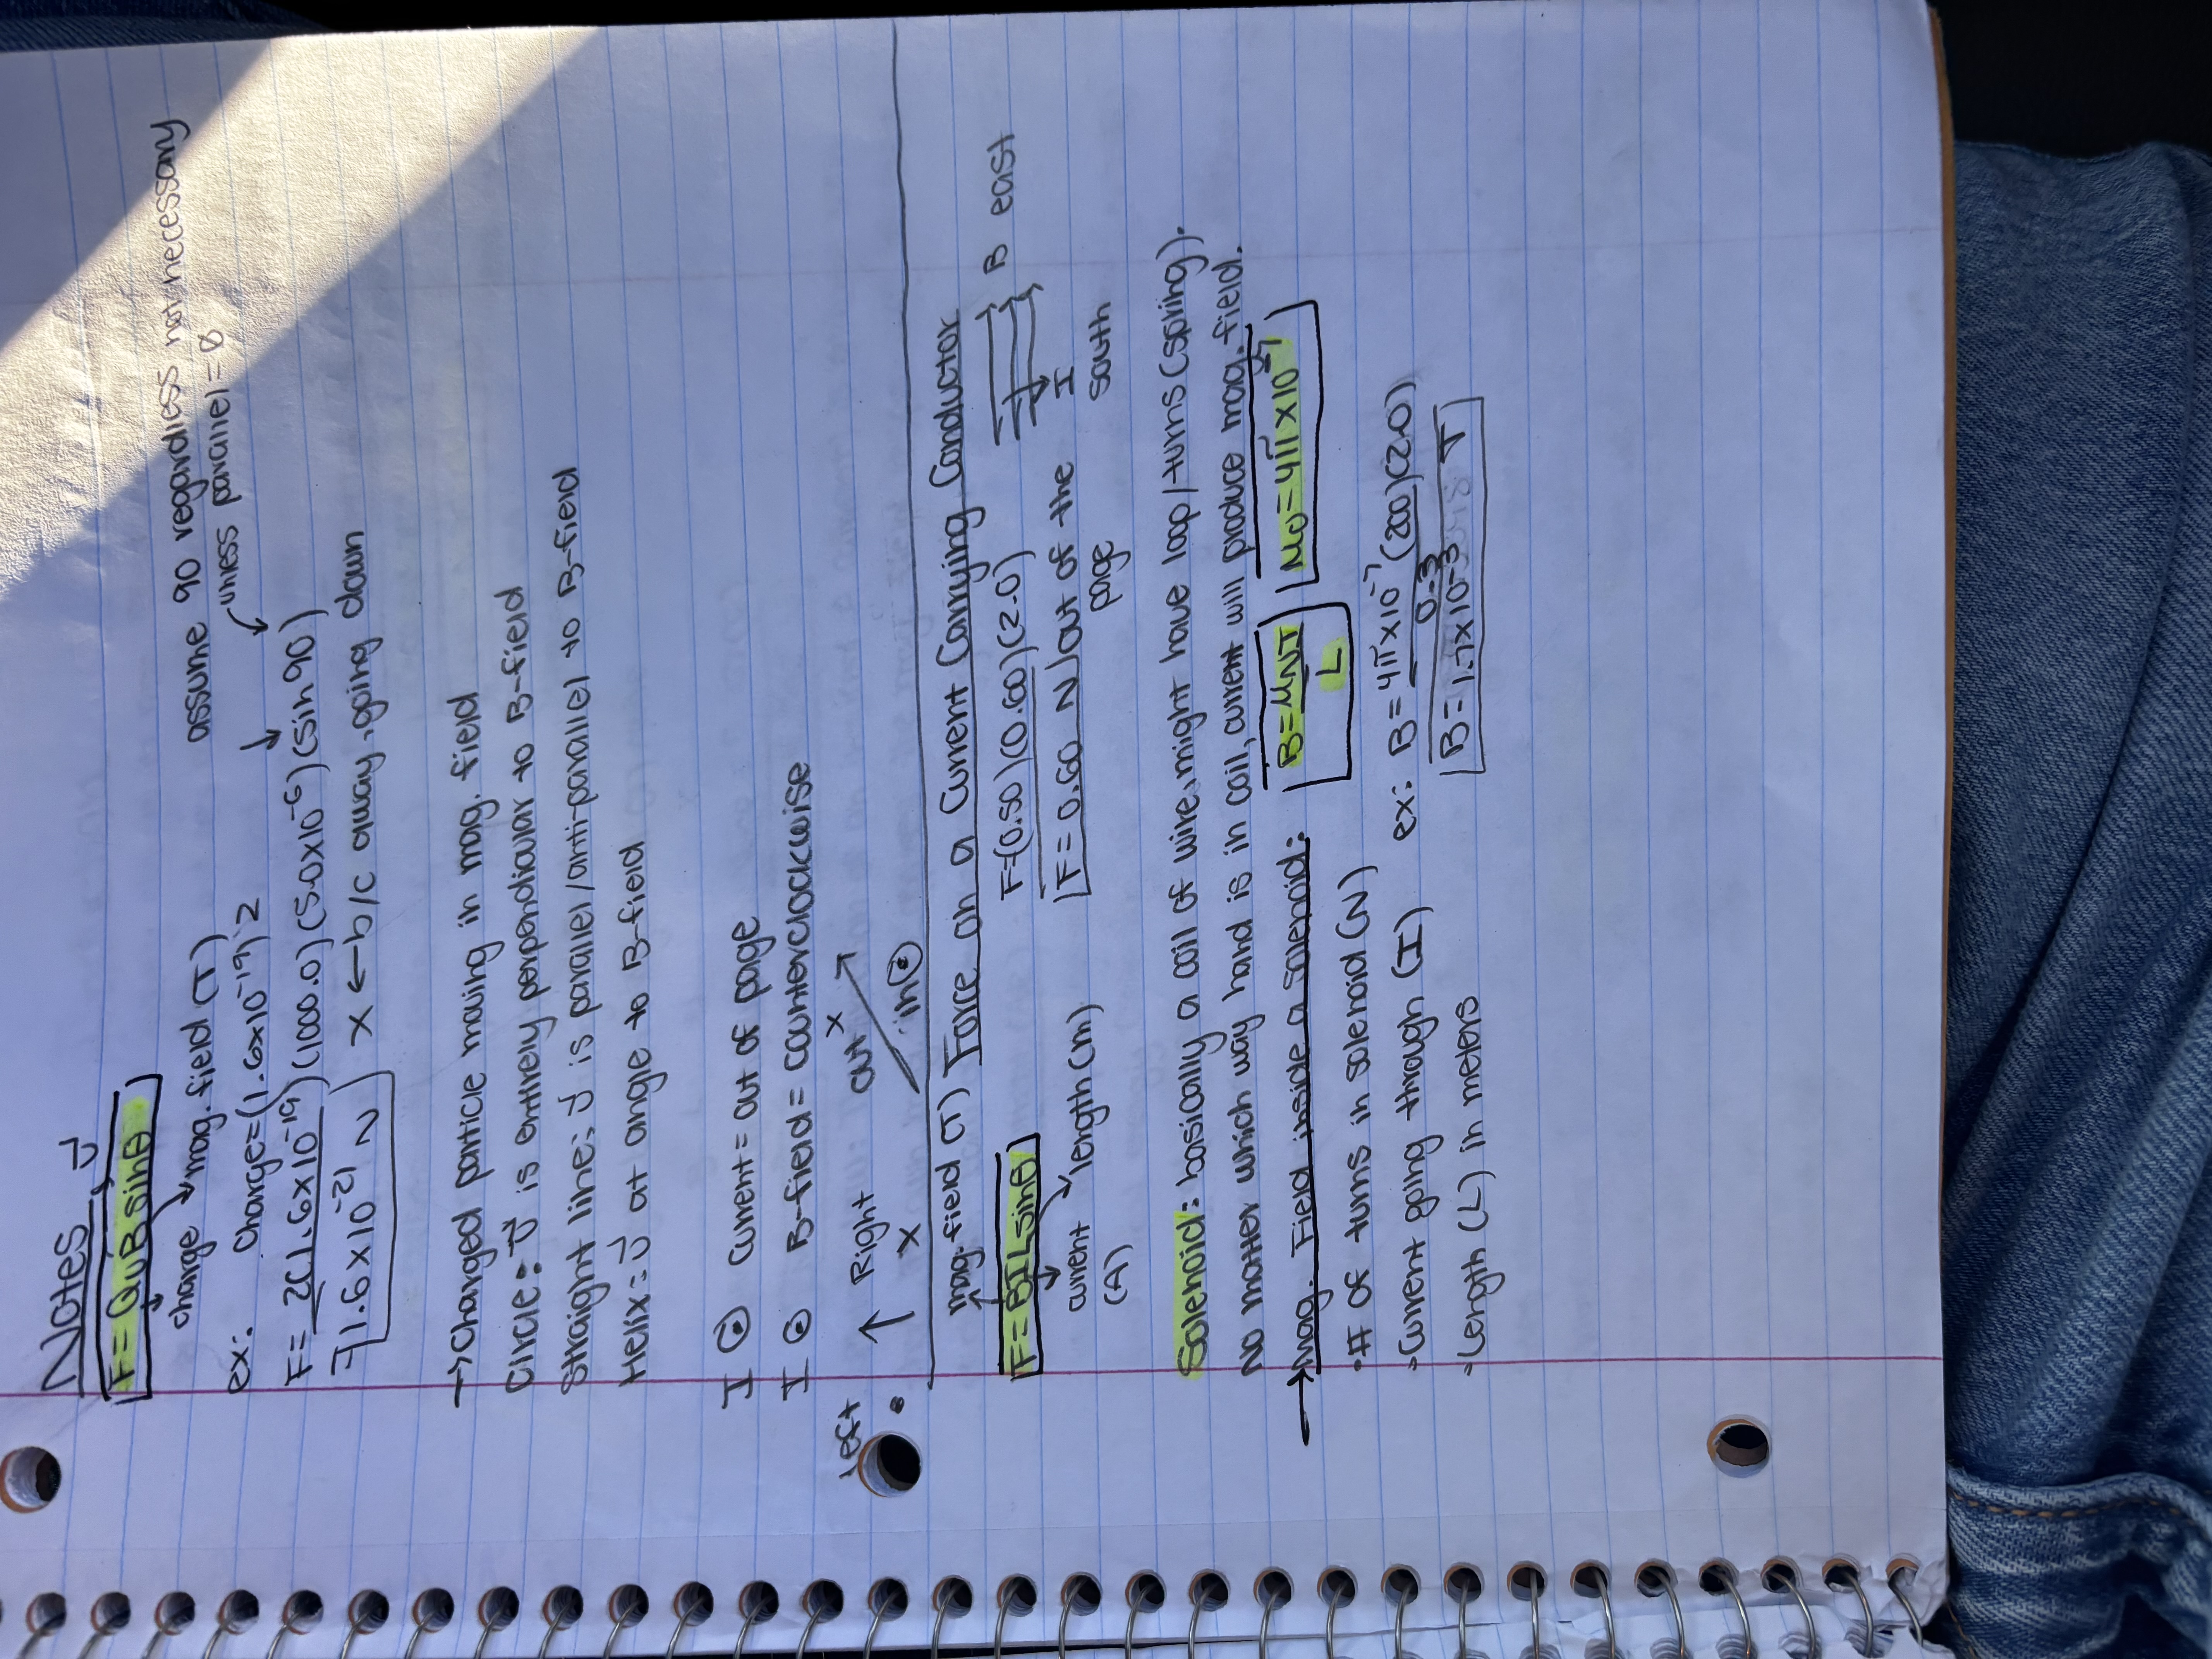 Notes
F=QvBsinθ, v
charge mag. field (T)
assume 90 regardless not necessary
unless parallel = 0
ex: charge=(1.6x10^-19)2
F= 2(1.6x10^-19)(1000.0)(5.0x10^-6)(sin90)
1.6x10^-21 N x ← b/c away, going down
→ Charged particle moving in mag. field
Circle: v is entirely perpendicular to B-field
Straight line: v is parallel/anti-parallel to B-field
Helix: v at angle to B-field
I ⊙ current = out of page
I ⊙ B-field = counterclockwise
Left ↑ Right out x
• x in ⊙
mag. field (T) Force on a Current Carrying Conductor
F=BILsinθ F=(0.50)(0.60)(2.0) B east
current length (m) F=0.60 N out of the I
(A) page south
Solenoid: basically a coil of wire, might have loop/turns (spring).
No matter which way hand is in coil, current will produce mag. field.
→ Mag. Field inside a solenoid: B=μNI/L Mo=4π x10^-7
• # of turns in solenoid (N)
• Current going through (I) ex: B= 4π x10^-7 (200)(2.0)
0.3
• Length (L) in meters B= 1.7 x 10^-3 T